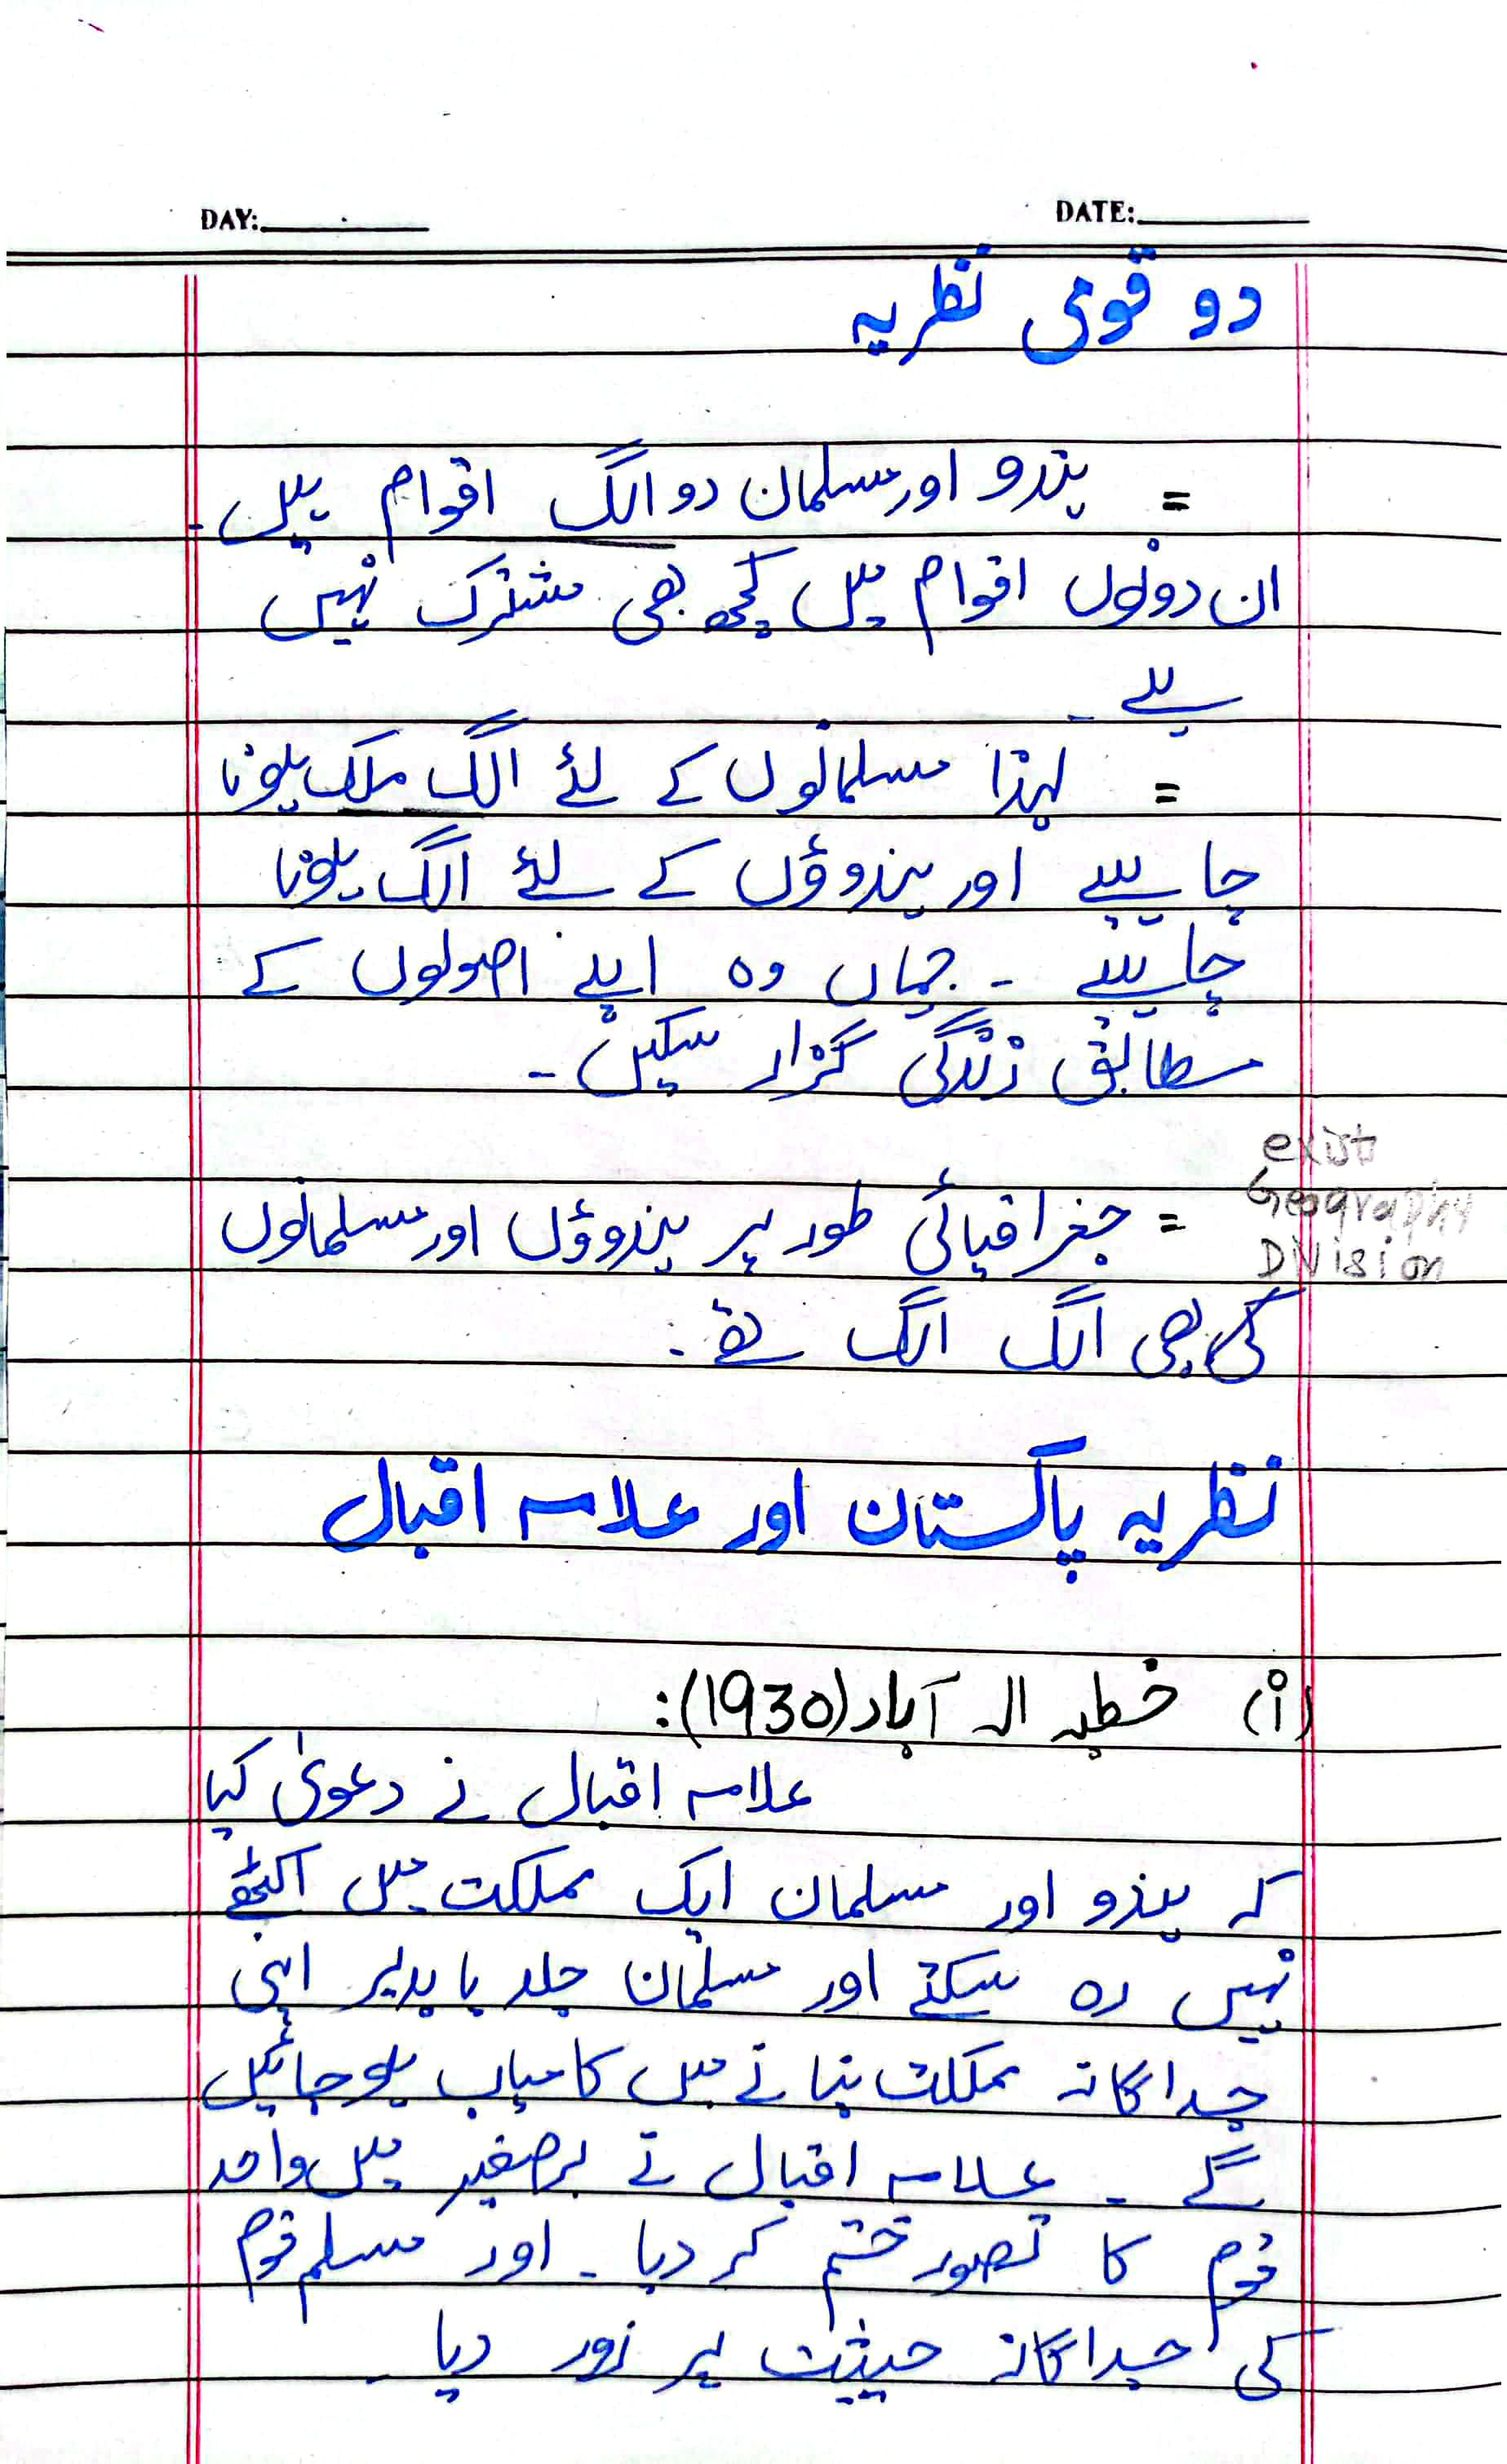 DAY: DATE:
دو قومی نظریہ
= ہندو اور مسلمان دو الگ اقوام ہیں۔
ان دونوں اقوام میں کچھ بھی مشترک نہیں
ہے۔
= لہذا مسلمانوں کے لئے الگ ملک ہونا
چاہیئے اور ہندوؤں کے لئے الگ ہونا
چاہیئے ۔ جہاں وہ اپنے اصولوں کے
مطابق زندگی گزار سکیں۔
exist
Geography
Division
= جغرافیائی طور پر ہندوؤں اور مسلمانوں
کی بھی الگ الگ تھے۔
نظریہ پاکستان اور علامہ اقبال
(i) خطبہ الہ آباد (1930):
علامہ اقبال نے دعویٰ کیا
کہ ہندو اور مسلمان ایک مملکت میں اکٹھے
نہیں رہ سکتے اور مسلمان جلد یا بدیر اپنی
جداگانہ مملکت بنانے میں کامیاب ہو جائیں
گے ۔ علامہ اقبال نے برصغیر میں واحد
قوم کا تصور ختم کر دیا ۔ اور مسلم قوم
کی جداگانہ حیثیت پر زور دیا